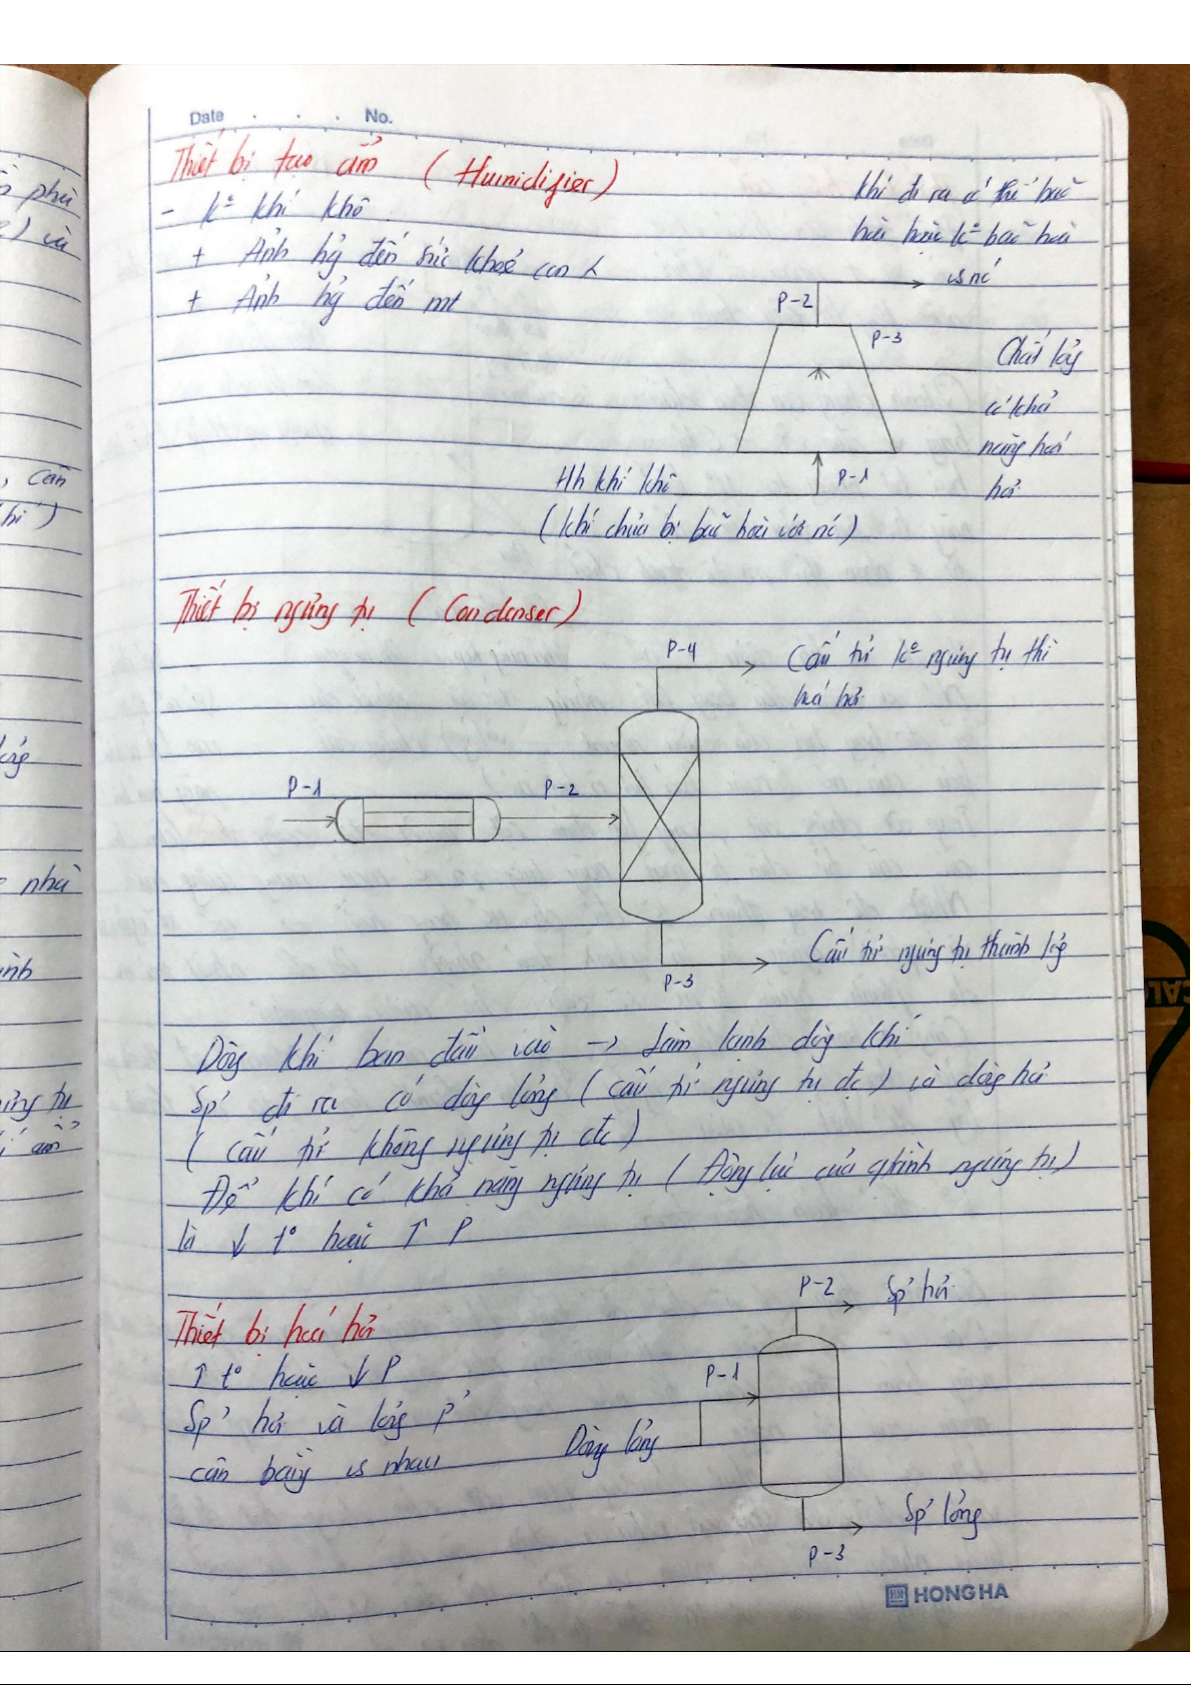 Date No.
Thiết bị tạo ẩm (Humidifier)
- k° khí khô
+ Ảnh hg̉ đến sức khoẻ con
+ Ảnh hg̉ đến mt
khí đi ra có thể bão
hoà hoặc k° bão hoà
vs nc
P-2
P-3
Chất lỏg
có khả
năng hoá
hơi
Hh khí khô
P-1
(khí chưa bị bão hoà với nc)
Thiết bị ngưng tụ (Condenser)
P-4
Cấu tử k° ngưng tụ thì
hoá hơi
P-1
P-2
Cấu tử ngưng tụ thành lỏg
P-3
Dòng khí ban đầu vào → Làm lạnh dòg khí
Sp' đi ra có dòg lỏng (cấu tử ngưng tụ đc) và dòng hơi
(cấu tử không ngưng tụ đc)
Để khí có khả năng ngưng tụ (Động lực của qtrình ngưng tụ)
là ↓ t° hoặc ↑ P
Thiết bị hoá hơi
↑ t° hoặc ↓ P
Sp' hơi và lỏng p̉
cân bằng vs nhau
P-2
Sp' hơi
P-1
Dòng lỏng
Sp' lỏng
P-3
HONG HA
, cần
nhà